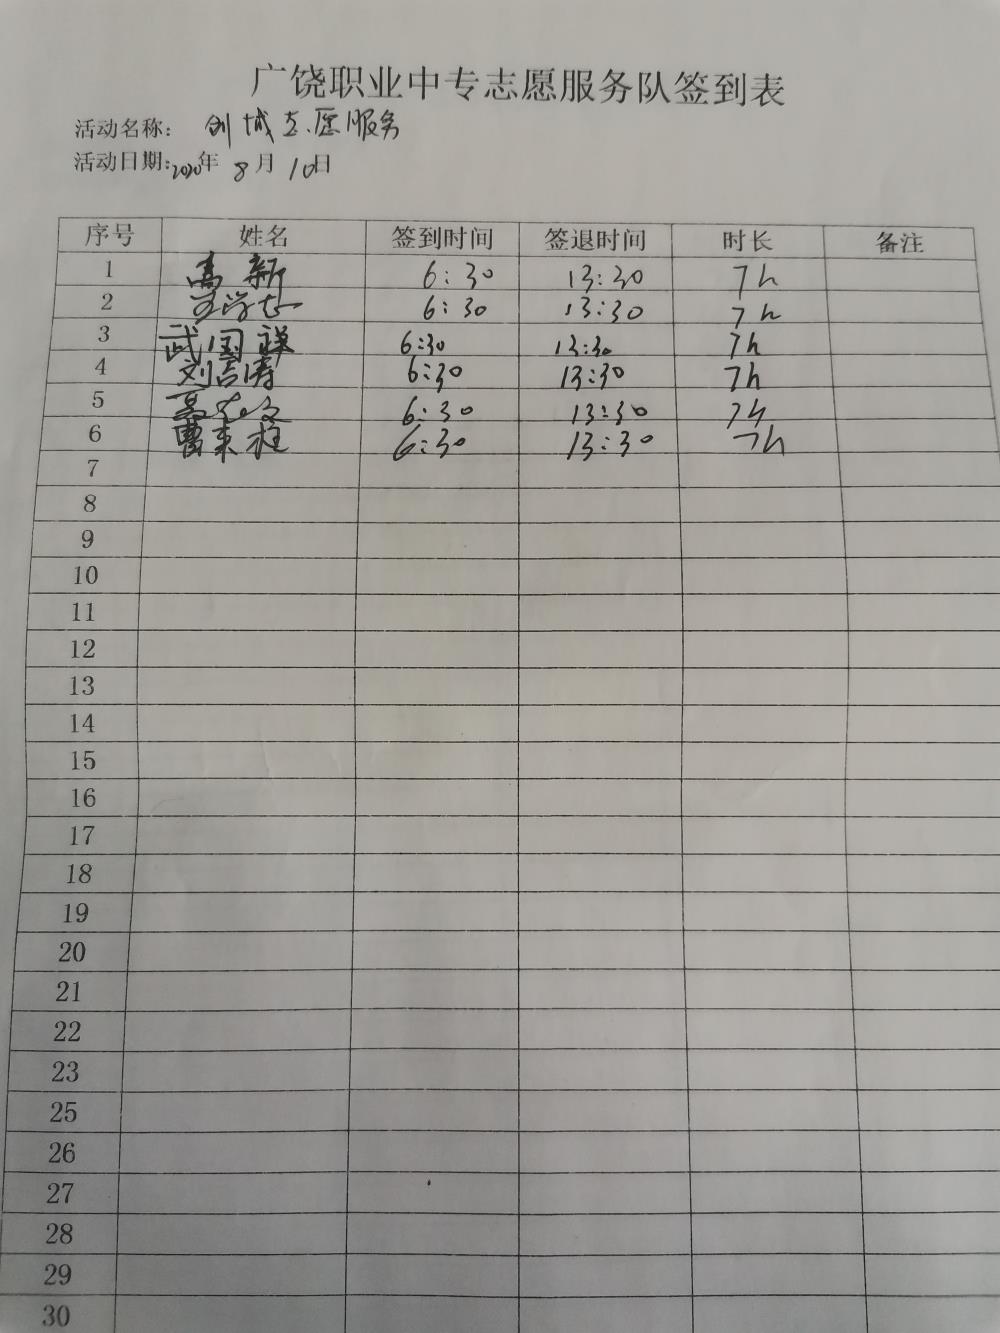 广饶职业中专志愿服务队签到表
活动名称: 创城志愿服务
活动日期: 2020年 8月 10日
序号 姓名 签到时间 签退时间 时长 备注
1 高新 6:30 13:30 7h
2 王学志 6:30 13:30 7h
3 武国祥 6:30 13:30 7h
4 刘吉涛 6:30 13:30 7h
5 6:30 13:30 7h
6 曹来柱 6:30 13:30 7h
7
8
9
10
11
12
13
14
15
16
17
18
19
20
21
22
23
25
26
27
28
29
30